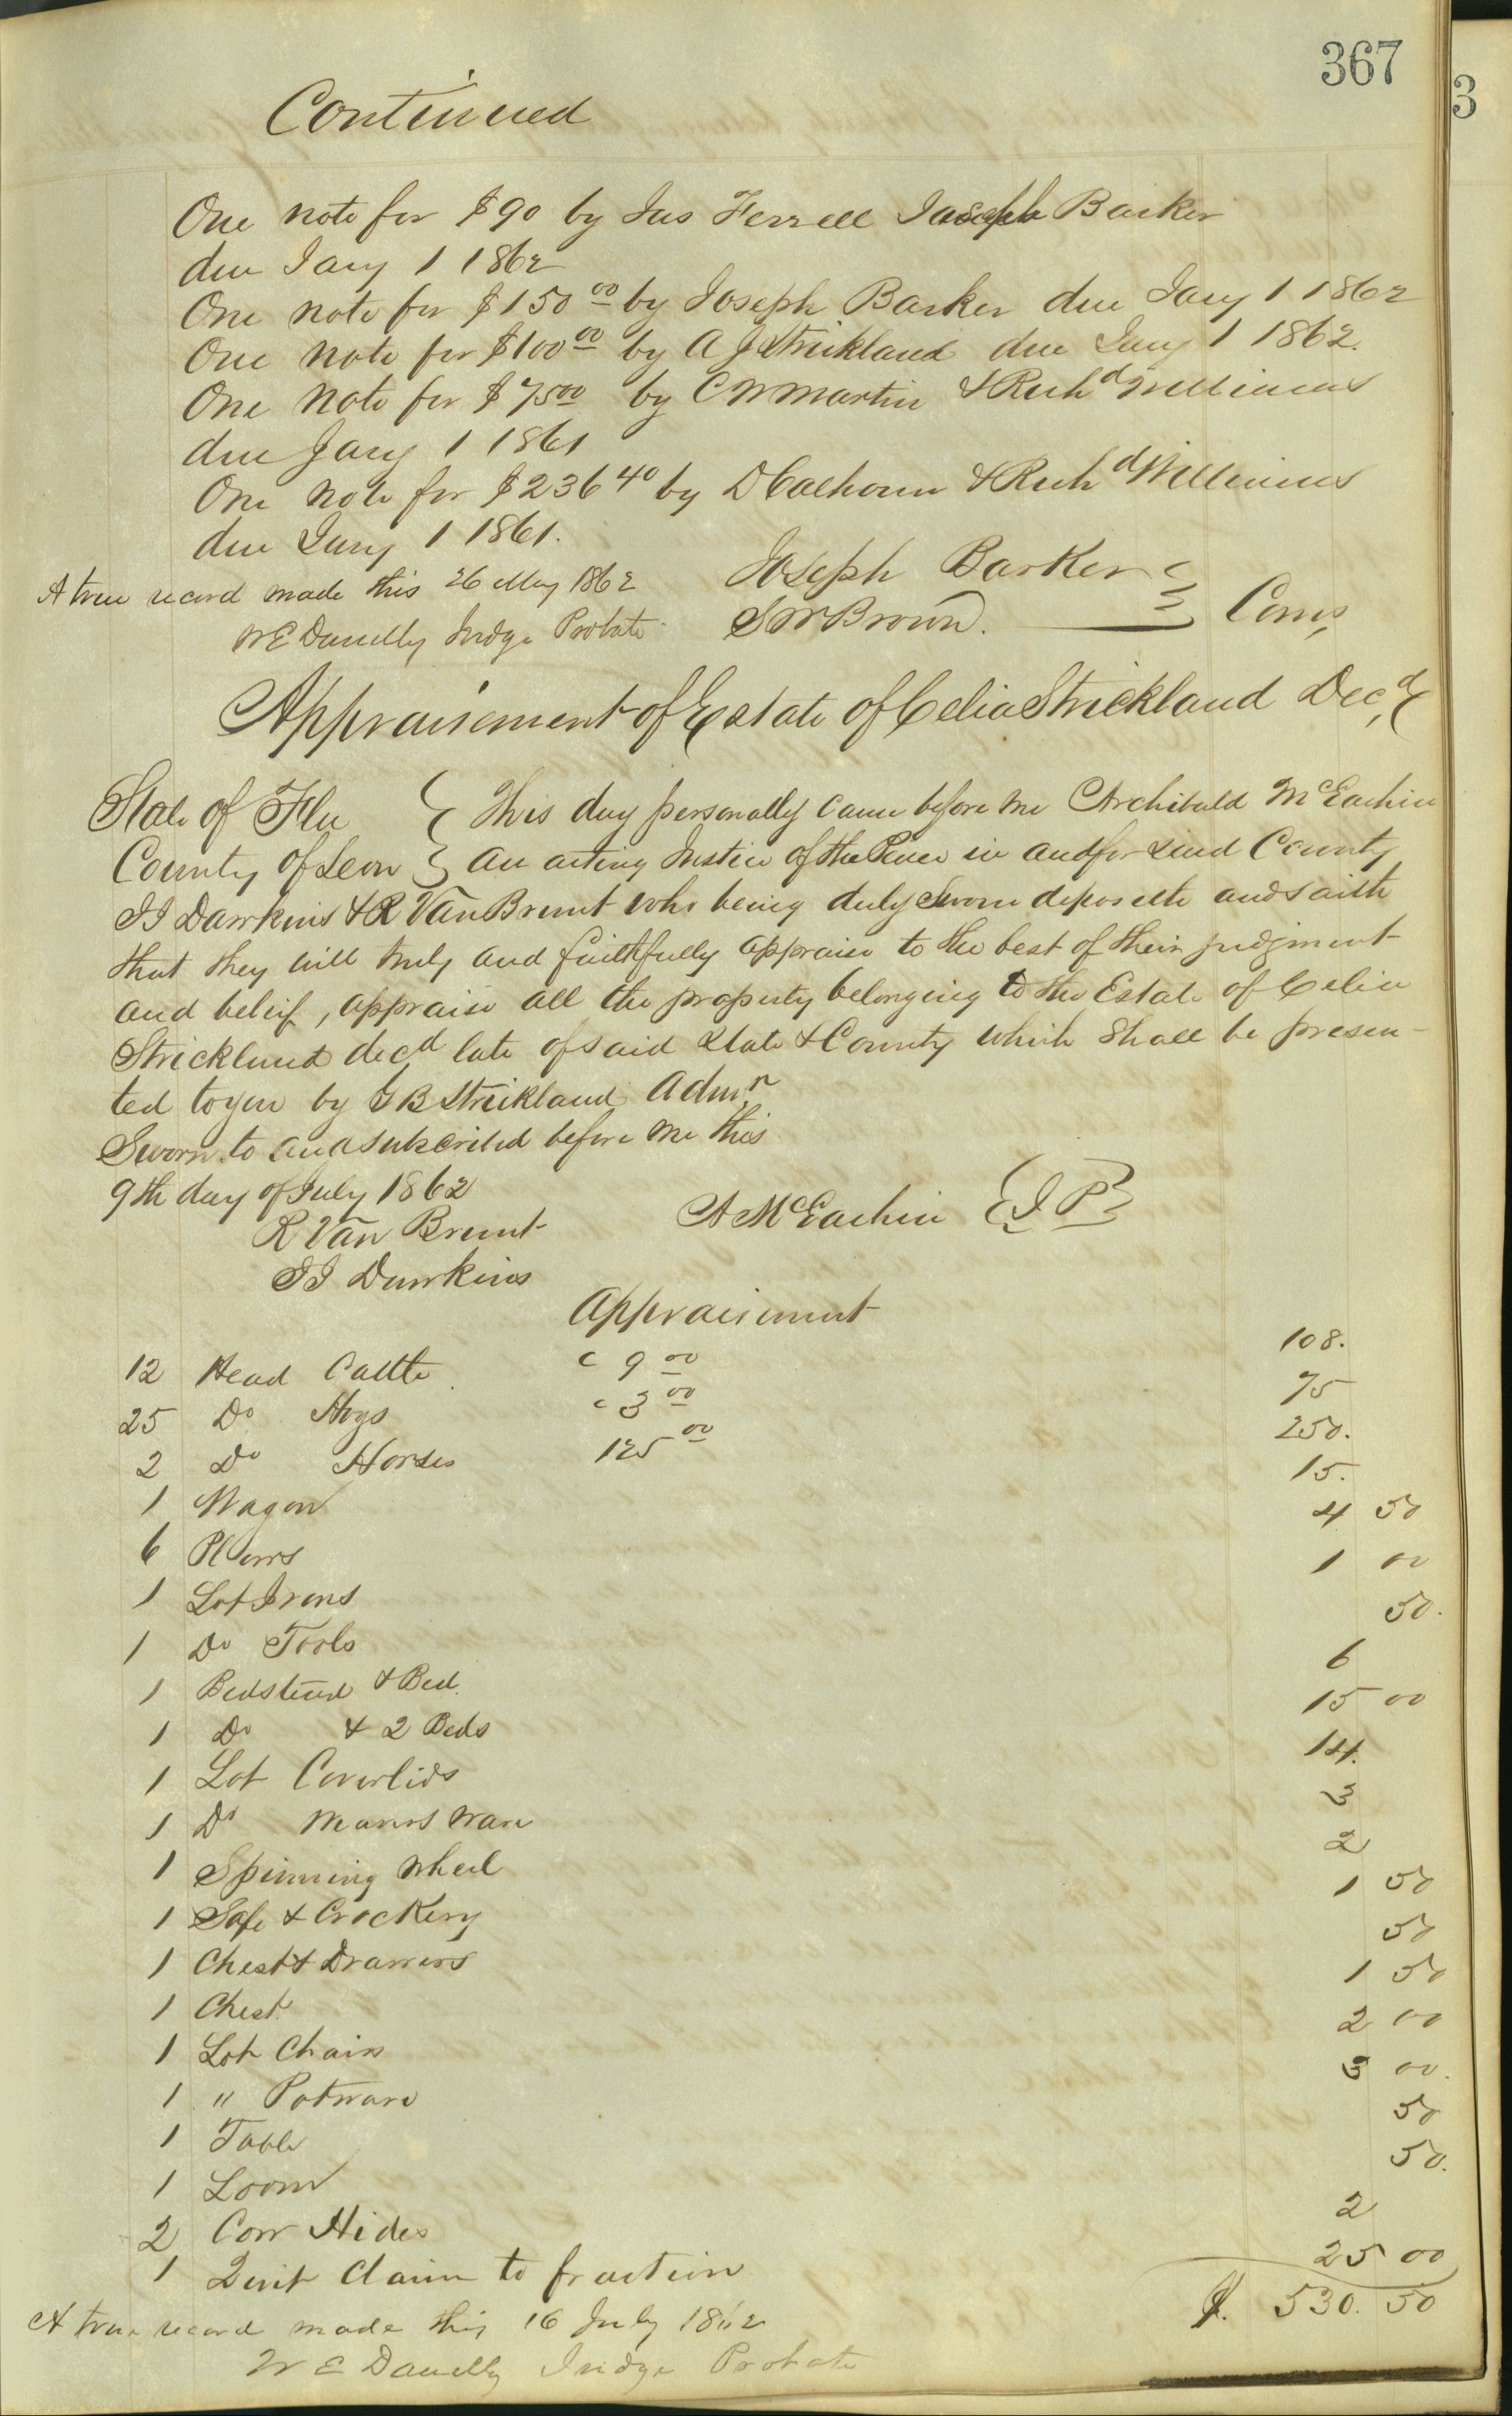 367
3
Continued
One note for $90 by Jas Ferrell Joseph Barker
due Jany 1 1862
One note for $150 00 by Joseph Barker due Jany 1 1862
One note for $100 00 by A J Strickland due Jany 1 1862.
One note for $75 00 by C W Martin & Richd Williams
due Jany 1 1861
One note for $236 40 by D Calhoun & Richd Williams
due Jany 1 1861.
A true record made this 26 May 1862
W E Danelly Judge Probate
Joseph Barker
S W Brown. Coms
Appraisement of Estate of Celia Strickland Decd
State of Fla { This day personally came before me Archibald McEachin
County of Leon } an acting Justice of the Peace in and for said County
J J Dawkins & R Van Brunt who being duly sworn deposeth and saith
that they will truly and faithfully appraise to the best of their judgment
and beleif, appraise all the property belonging to the Estate of Celia
Strickland decd late of said State & County which shall be presen-
ted to you by G B Strickland Admr
Sworn to and subscribed before me this
9th day of July 1862
R Van Brunt A McEachin {J P}
J J Dawkins
Appraisement
12 Head Cattle c 9 00 108.
25 Do Hogs c 3 00 75
2 Do Horses 125 00 250.
1 Wagon 15.
6 Plows 4 50
1 Lot Irons 1 00
1 Do Tools 50.
1 Bedstead & Bed. 6
1 Do & 2 Beds 15 00
1 Lot Coverlids 14.
1 Do 3
1 Spinning Wheel 2
1 Safe & Crockery 1 50
1 Chest & Drawers 50
1 Chest 1 50
1 Lot Chairs 2 00
1 " Potware 3 00.
1 Table 50
1 Loom 50.
2 Cow Hides 2
1 Quit Claim to fraction 25 00
$. 530. 50
A true record made this 16 July 1862
W E Danelly Judge Probate